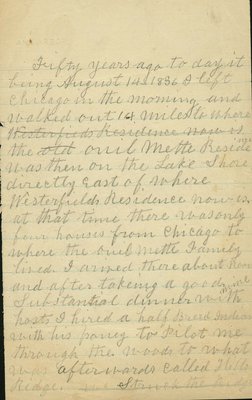 Fifty years ago to day it
being August 14 1836 I left
Chicago in the morning and
walked out 14 miles to where
Westerfields Residence now is
the old ouil Mette Reside
was then on the Lake Shore
directly East of where
Westerfields Residence now is,
at that time there was only
four houses from Chicago to
where the ouil mette Family
lived I arrived there about noon
and after takeing a good
Substantial dinner with
hosts I hired a half Breed Indian
with his poney to Pilot me
through the woods to what
was afterwards called
Ridge. Struck the